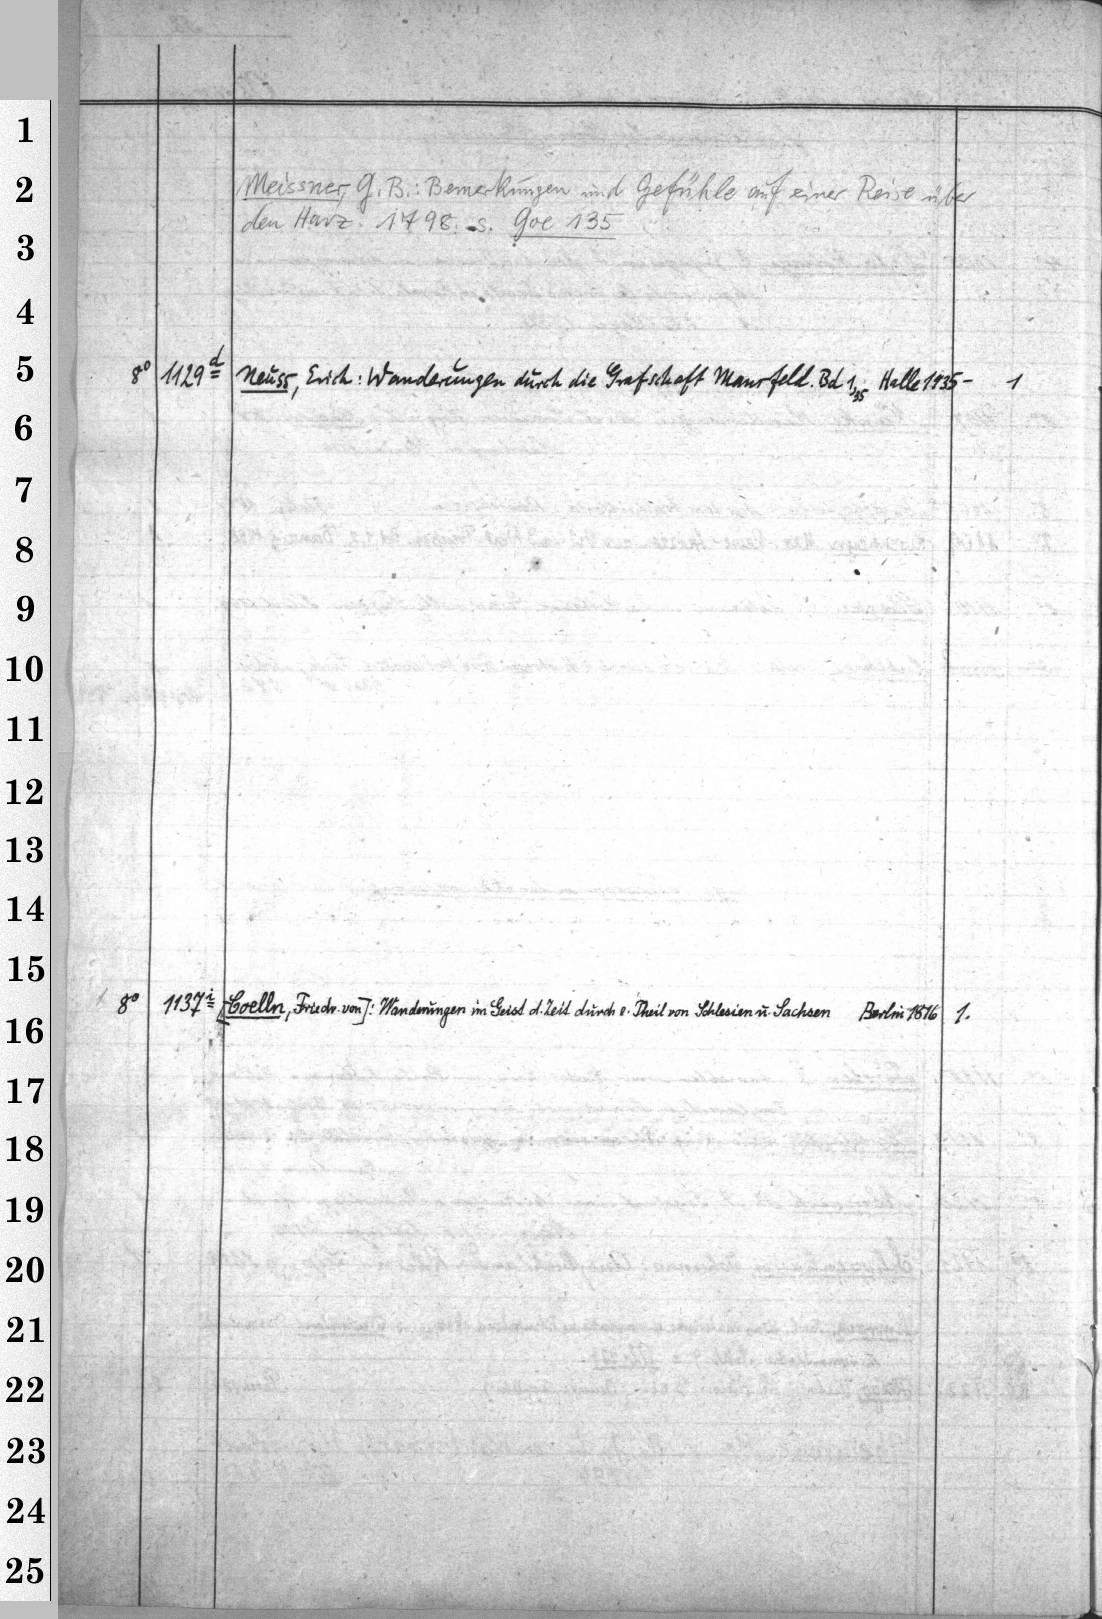 1
2
Meissner, G. B.: Bemerkungen und Gefühle auf einer Reise über
den Harz. 1798. s. Goe 135
3
4
5
8° 1129 d Neuss, Erich: Wanderungen durch die Grafschaft Mansfeld. Bd 1,35 Halle 1935- 1
6
7
8
9
10
11
12
13
14
15
8° 1137 i [Coelln, Friedr. von]: Wanderungen im Geist d. Zeit durch e. Theil von Schlesien u. Sachsen Berlin 1816 1.
16
17
18
19
20
21
22
23
24
25